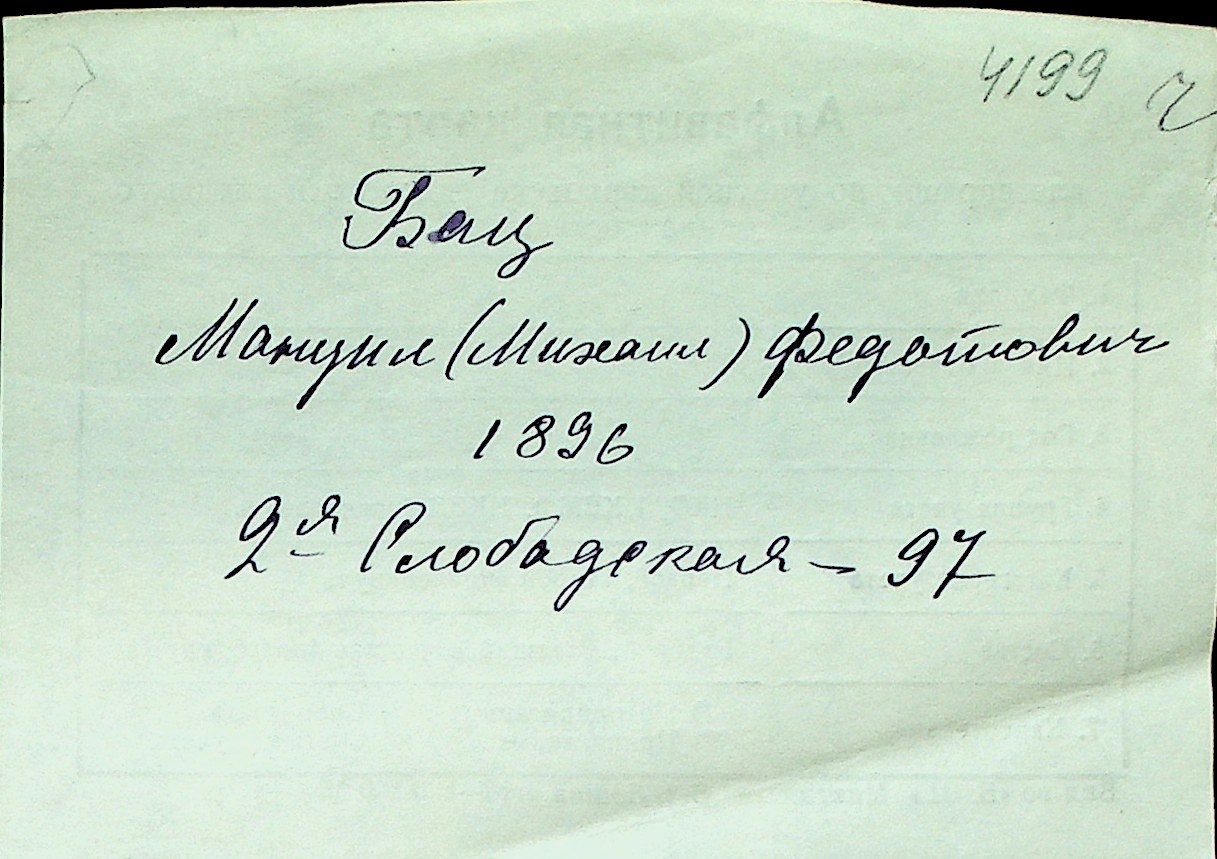 4199
Бац
Мануил (Михаил) Федотович
1896
2я Слободская - 97